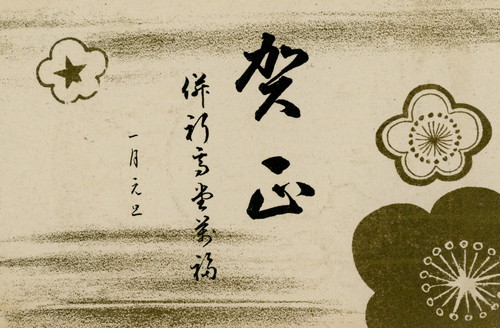 賀正
併祈高堂萬福
一月元旦